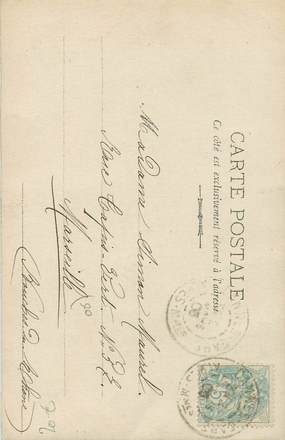 CARTE POSTALE
Ce côté est exclusivement réservé à l'adresse.
Madame Simon Maurel
Rue Tapis-Vert N° 32
Marseille
Bouches du Rhône